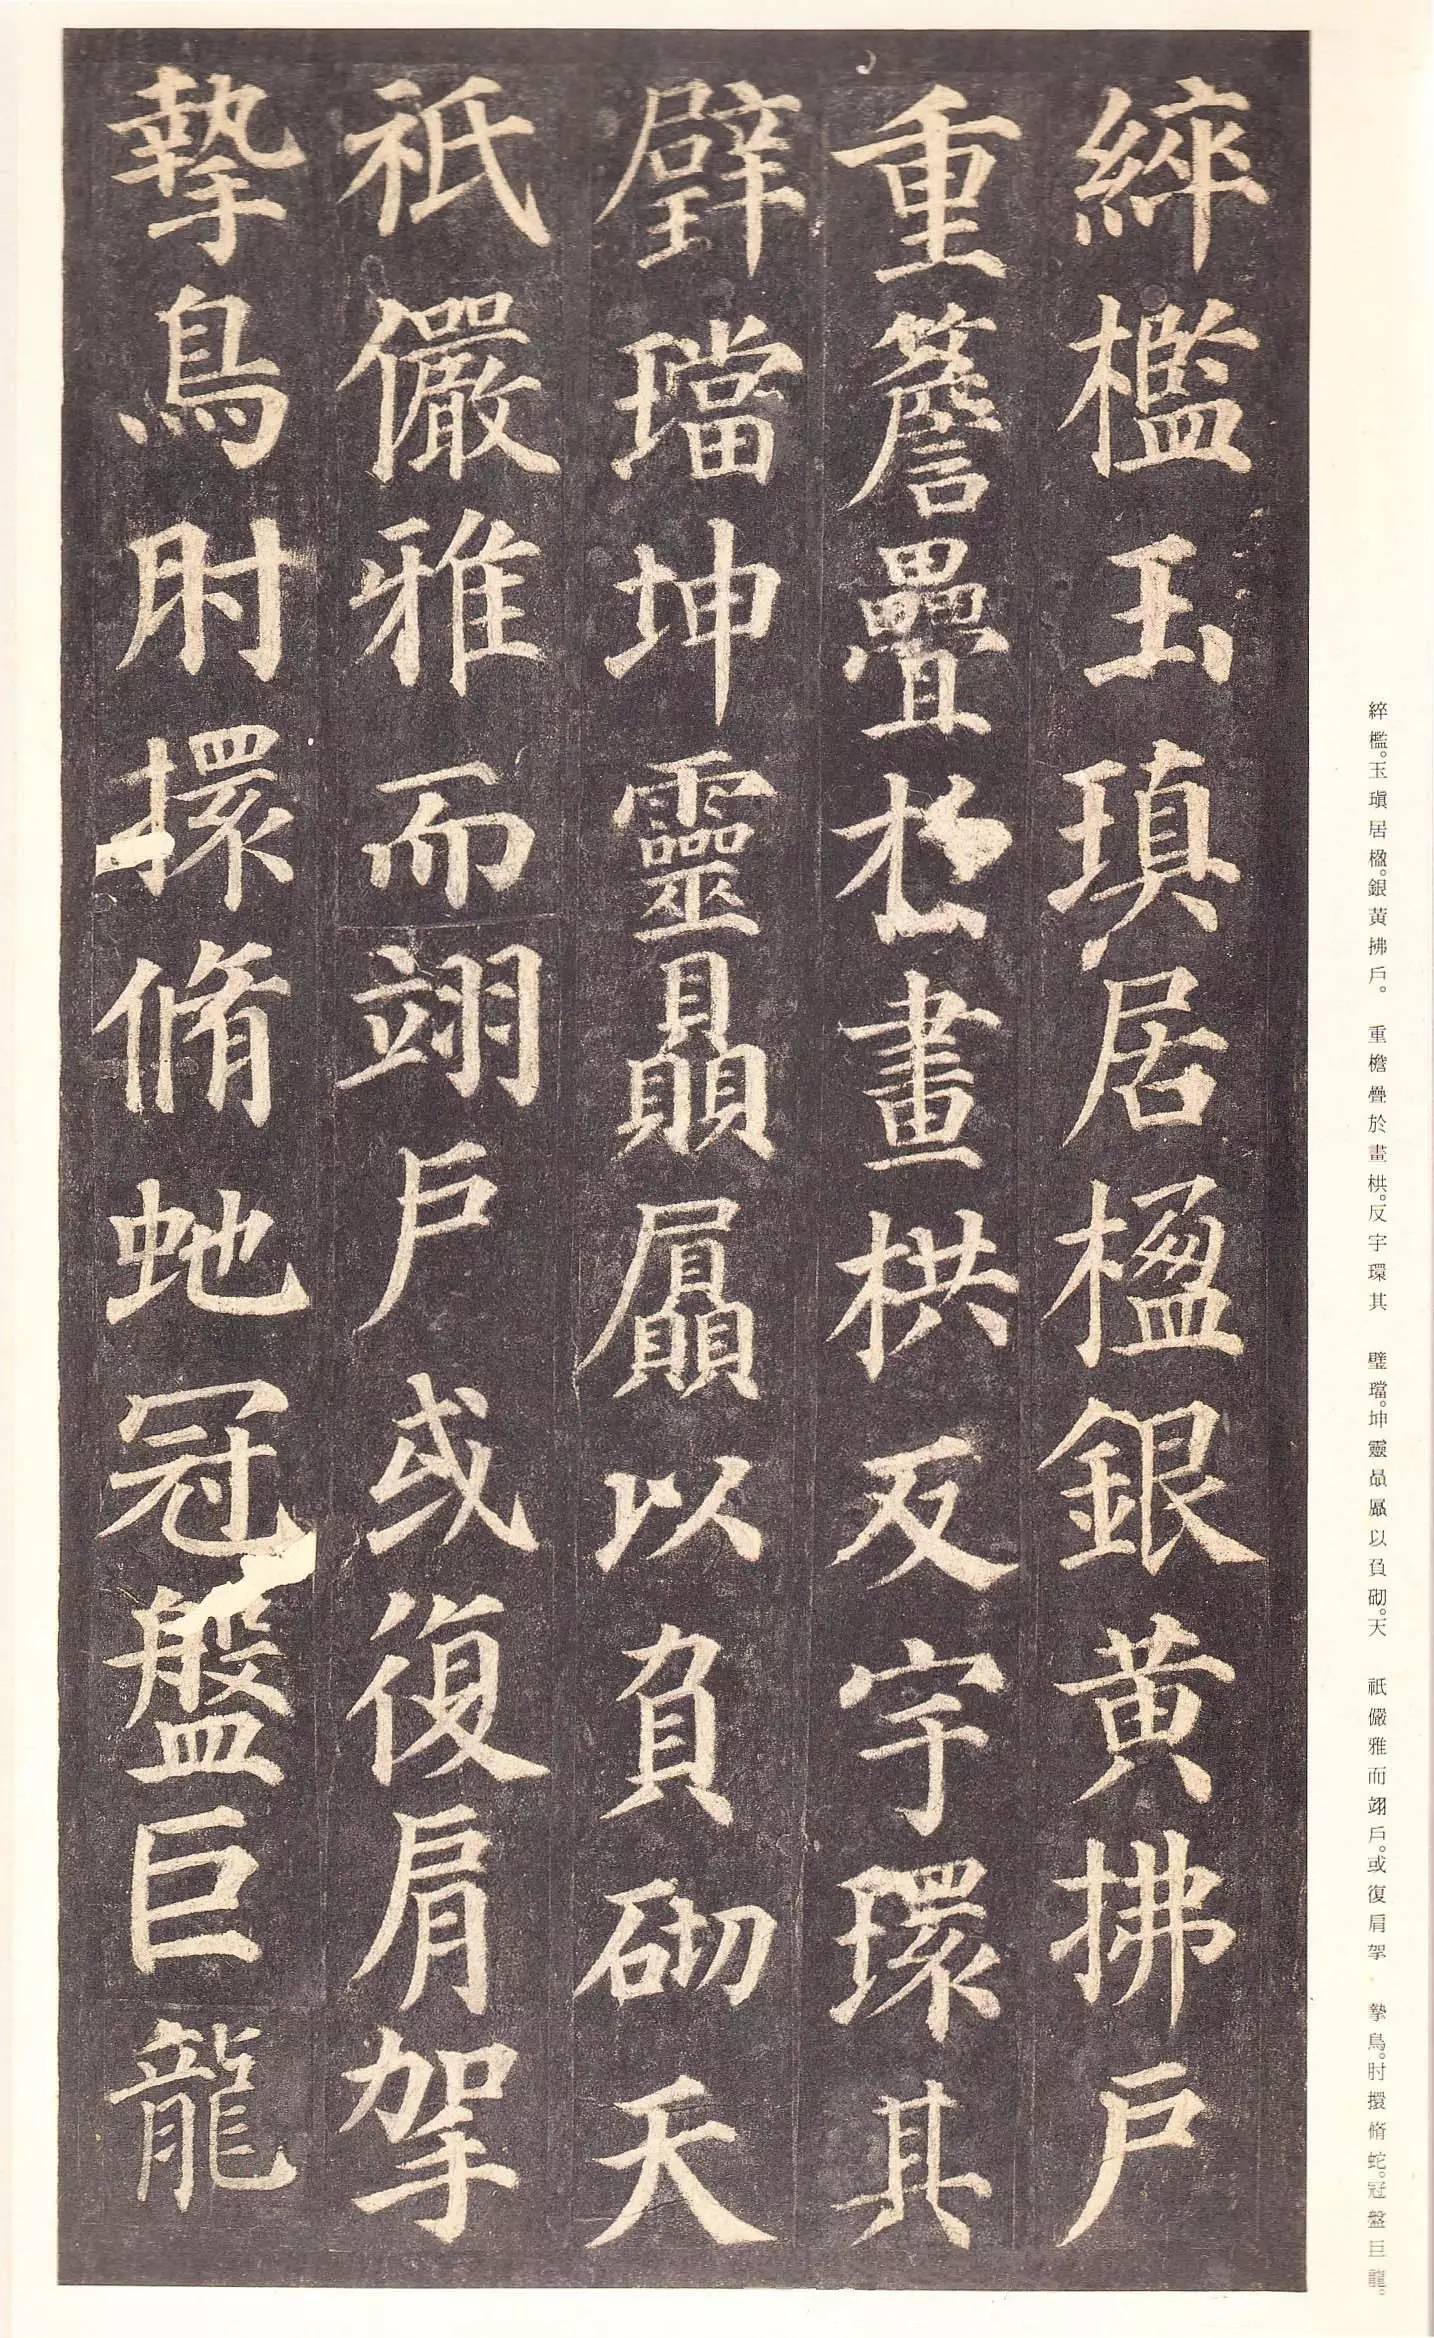 綷檻玉瑱居楹銀黃拂戶
重簷疊於畫栱反宇環其
璧璫坤靈贔屭以負砌天
祇儼雅而翊戶或復肩挐
摯鳥肘擐脩虵冠盤巨龍
綷檻。玉瑱居楹。銀黃拂戶。　重檐疊於畫栱。反宇環其　璧璫。坤靈贔屭以負砌。天　祇儼雅而翊戶。或復肩挐　摯鳥。肘擐脩蛇。冠盤巨龍。